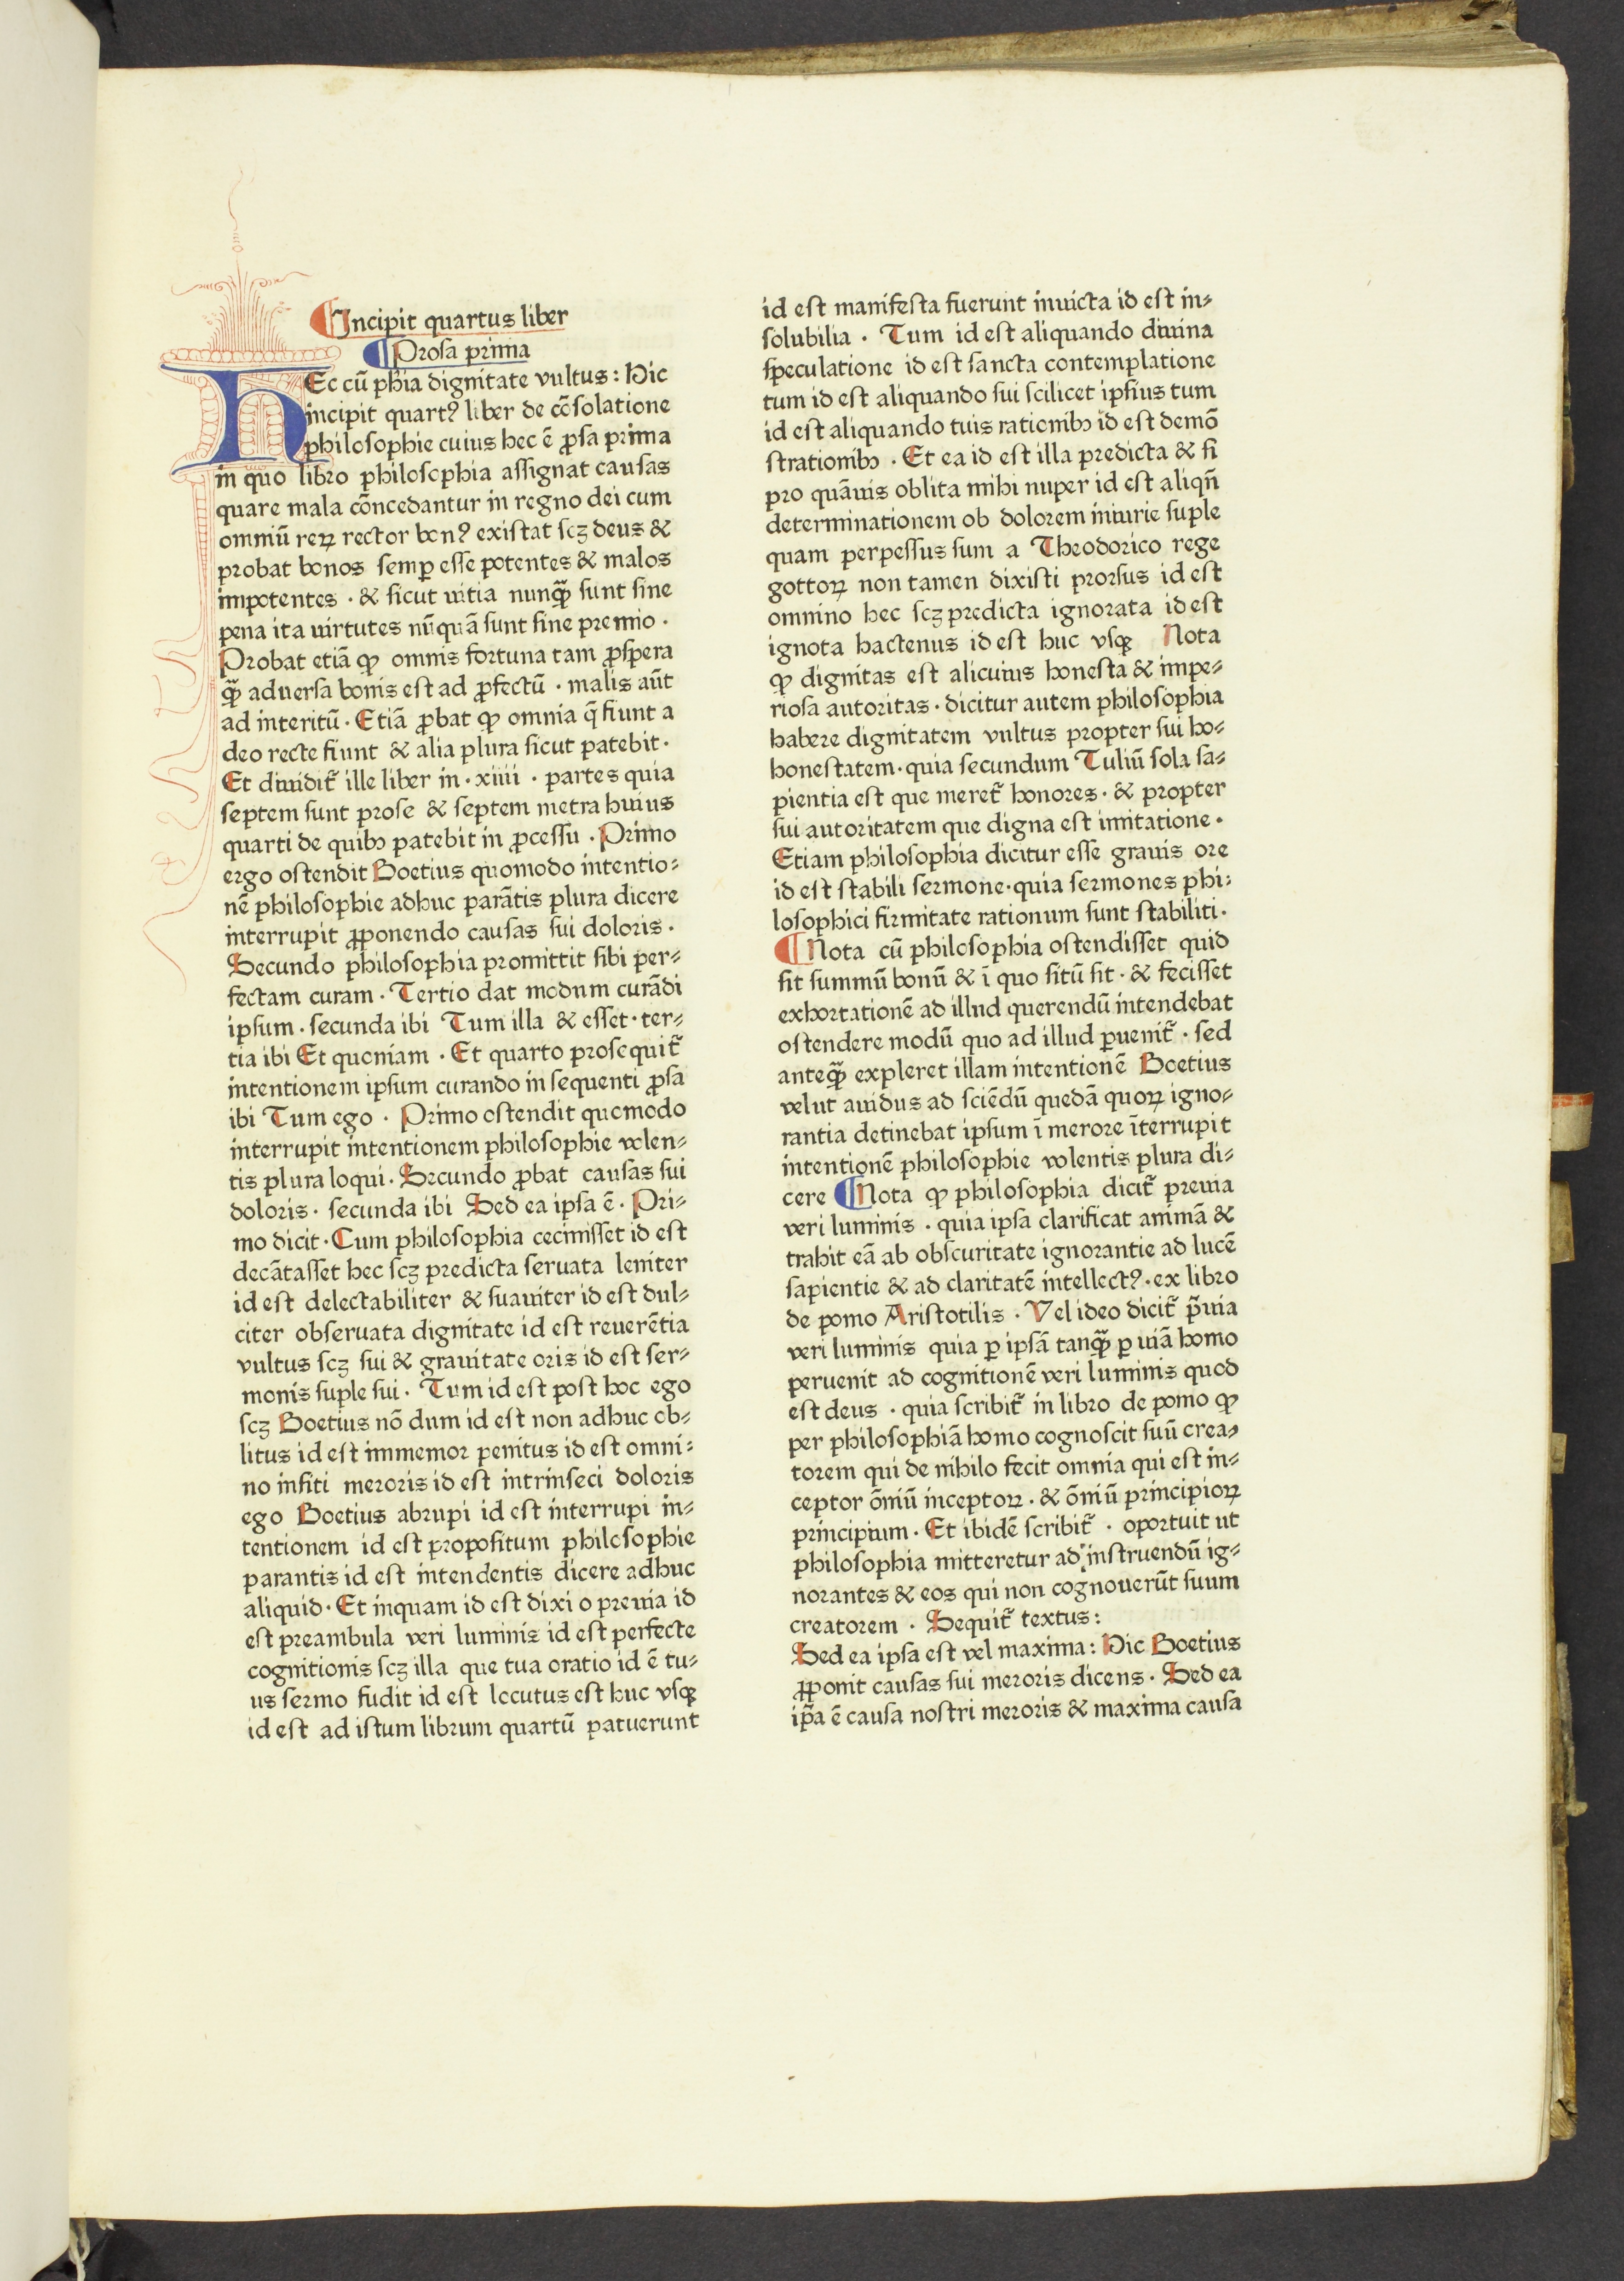 ¶Incipit quartus liber
¶Prosa prima
HEc cū phīa dignitate vultus: Hic
incipit quartꝰ liber de cōsolatione
philosophie cuius hec ē ꝓsa prima
in quo libro philosophia assignat causas
quare mala cōncedantur in regno dei cum
omniū reꝝ rector bonꝰ existat scꝫ deus &
probat bonos semꝑ esse potentes & malos
impotentes · & sicut uitia nunqᷓꝫ sunt sine
pena ita uirtutes nūquā sunt sine premio ·
Probat etiā ꝙ omnis fortuna tam ꝓspera
qᷓꝫ aduersa bonis est ad ꝓfectū · malis aūt
ad interitū · Etiā ꝓbat ꝙ omnia q̄ fiunt a
deo recte fiunt & alia plura sicut patebit ·
Et diuidit᷑ ille liber in · xiiii · partes quia
septem sunt prose & septem metra huius
quarti de quibꝫ patebit in ꝓcessu · Primo
ergo ostendit Boetius quomodo intentio⸗
nē philosophie adhuc parātis plura dicere
interrupit ꝓponendo causas sui doloris ·
Secundo philosophia promittit sibi per⸗
fectam curam · Tertio dat modum curādi
ipsum · secunda ibi Tum illa & esset · ter⸗
tia ibi Et quoniam · Et quarto prosequit᷑
intentionem ipsum curando in sequenti ꝓsa
ibi Tum ego · Primo ostendit quomodo
interrupit intentionem philosophie volen⸗
tis plura loqui · Secundo ꝓbat causas sui
doloris · secunda ibi Sed ea ipsa ē · Pri⸗
mo dicit · Cum philosophia cecinisset id est
decātasset hec scꝫ predicta seruata leniter
id est delectabiliter & suauiter id est dul⸗
citer obseruata dignitate id est reuerētia
vultus scꝫ sui & grauitate oris id est ser⸗
monis suple sui · Tum id est post hoc ego
scꝫ Boetius nō dum id est non adhuc ob⸗
litus id est immemor penitus id est omni⸗
no insiti meroris id est intrinseci doloris
ego Boetius abrupi id est interrupi in⸗
tentionem id est propositum philosophie
parantis id est intendentis dicere adhuc
aliquid · Et inquam id est dixi o preuia id
est preambula veri luminis id est perfecte
cognitionis scꝫ illa que tua oratio id ē tu⸗
us sermo fudit id est locutus est huc vsqꝫ
id est ad istum librum quartū patuerunt
id est manifesta fuerunt inuicta id est in⸗
solubilia · Tum id est aliquando diuina
speculatione id est sancta contemplatione
tum id est aliquando sui scilicet ipsius tum
id est aliquando tuis rationibꝫ id est demō
strationibꝫ · Et ea id est illa predicta & si
pro quāuis oblita mihi nuper id est aliqn̄
determinationem ob dolorem iniurie suple
quam perpessus sum a Theodorico rege
gottoꝝ non tamen dixisti prorsus id est
omnino hec scꝫ predicta ignorata id est
ignota hactenus id est huc vsqꝫ Nota
ꝙ dignitas est alicuius honesta & impe⸗
riosa autoritas · dicitur autem philosophia
habere dignitatem vultus propter sui ho⸗
honestatem · quia secundum Tuliū sola sa⸗
pientia est que meret᷑ honores · & propter
sui autoritatem que digna est imitatione ·
Etiam philosophia dicitur esse grauis ore
id est stabili sermone · quia sermones phi⸗
losophici firmitate rationum sunt stabiliti ·
¶Nota cū philosophia ostendisset quid
sit summū bonū & ī quo sitū sit · & fecisset
exhortationē ad illud querendū intendebat
ostendere modū quo ad illud ꝑuenit᷑ · sed
anteqᷓꝫ expleret illam intentionē Boetius
velut auidus ad sciēdū quedā quoꝝ igno⸗
rantia detinebat ipsum ī merore īterrupit
intentionē philosophie volentis plura di⸗
cere ¶Nota ꝙ philosophia dicit᷑ preuia
veri luminis · quia ipsa clarificat animā &
trahit eā ab obscuritate ignorantie ad lucē
sapientie & ad claritatē intellectꝰ · ex libro
de pomo Aristotilis · Vel ideo dicit᷑ p̄uia
veri luminis quia ꝑ ipsā tanqᷓꝫ ꝑ uiā homo
peruenit ad cognitionē veri luminis quod
est deus · quia scribit᷑ in libro de pomo ꝙ
per philosophiā homo cognoscit suū crea⸗
torem qui de nihilo fecit omnia qui est in⸗
ceptor ōniū inceptoꝝ · & ōniū principioꝝ
principium · Et ibidē scribit᷑ · oportuit ut
philosophia mitteretur ad instruendū ig⸗
norantes & eos qui non cognouerūt suum
creatorem · Sequit᷑ textus:
Sed ea ipsa est vel maxima: Hic Boetius
ꝓponit causas sui meroris dicens · Sed ea
ip̄a ē causa nostri meroris & maxima causa